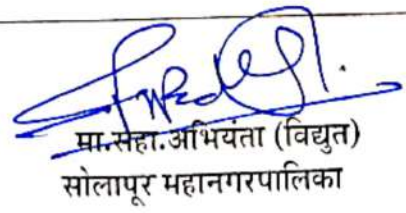 मा.सहा.अभियंता (विद्युत)
सोलापूर महानगरपालिका